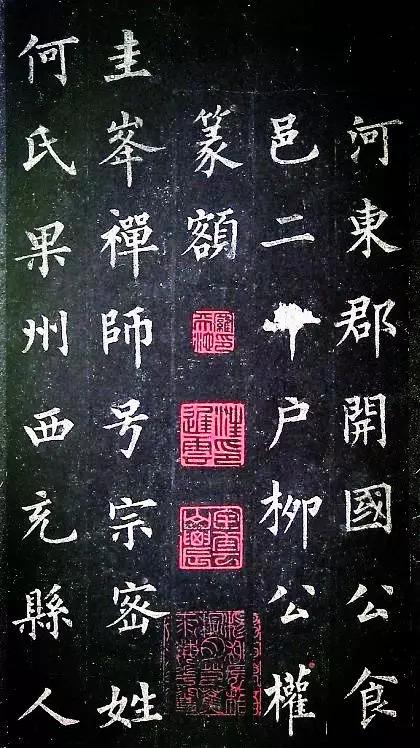 河東郡開國公食
邑二千户柳公權
篆額
圭峯禪師号宗密姓
何氏果州西充縣人